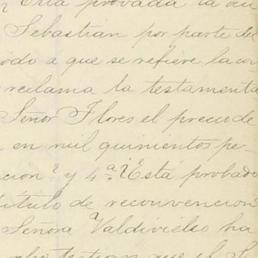 esta probada la au
Sebastián por parte del
a que se refiere la con
reclama la testamenta
Señor Flores el precio de
en mil quinientos pe
cion? y 4ª ¿Está probado
título de reconvencion
Señora Valdivielso ha
que el S